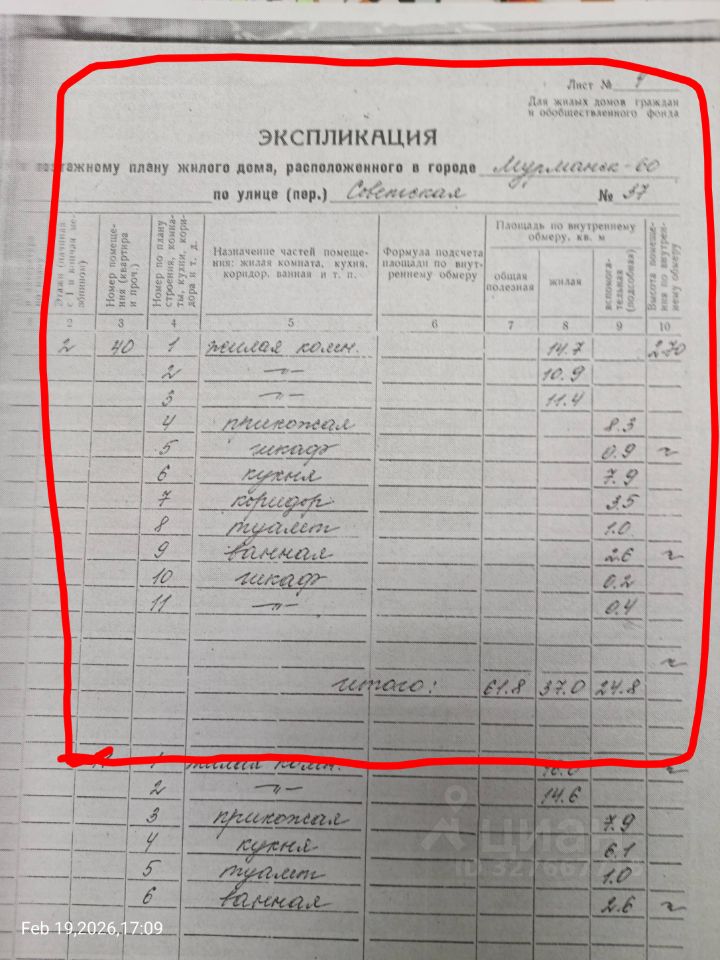 Лист № 4
Для жилых домов граждан
и обобществленного фонда
ЭКСПЛИКАЦИЯ
поэтажному плану жилого дома, расположенного в городе Мурманск-60
по улице (пер.) Советская № 37
Этажи (начиная с 1 и кончая
Номер помещения (квартира и проч.)
Номер по плану строения, комнаты, кухни, коридора и т. д.
Назначение частей помещения: жилая комната, кухня, коридор, ванная и т. п.
Формула подсчета площади по внутреннему обмеру
Площадь по внутреннему обмеру, кв. м
общая полезная
жилая
вспомогательная (подсобная)
Высота помещения по внутреннему обмеру
2 3 4 5 6 7 8 9 10
2 40 1 жилая комн. 14.7 2.70
2 -"- 10.9
3 -"- 11.4
4 прихожая 8.3
5 шкаф 0.9 ~
6 кухня 7.9
7 коридор 3.5
8 туалет 1.0
9 ванная 2.6 ~
10 шкаф 0.2
11 -"- 0.4
~
итого: 61.8 37.0 24.8
1 жилая комн. ~
2 -"- 14.6
3 прихожая 7.9
4 кухня 6.1
5 туалет 1.0
6 ванная 2.6 ~
циан
Feb 19,2026,17:09